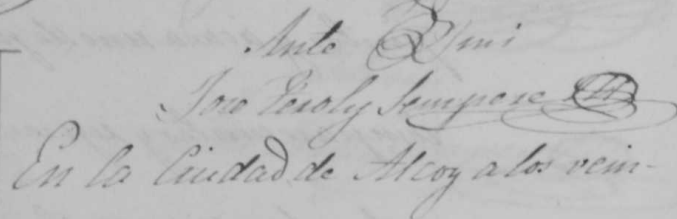 Ante Mi
Jose Peroly Sempere
En la Ciudad de Alcoy a los vein-